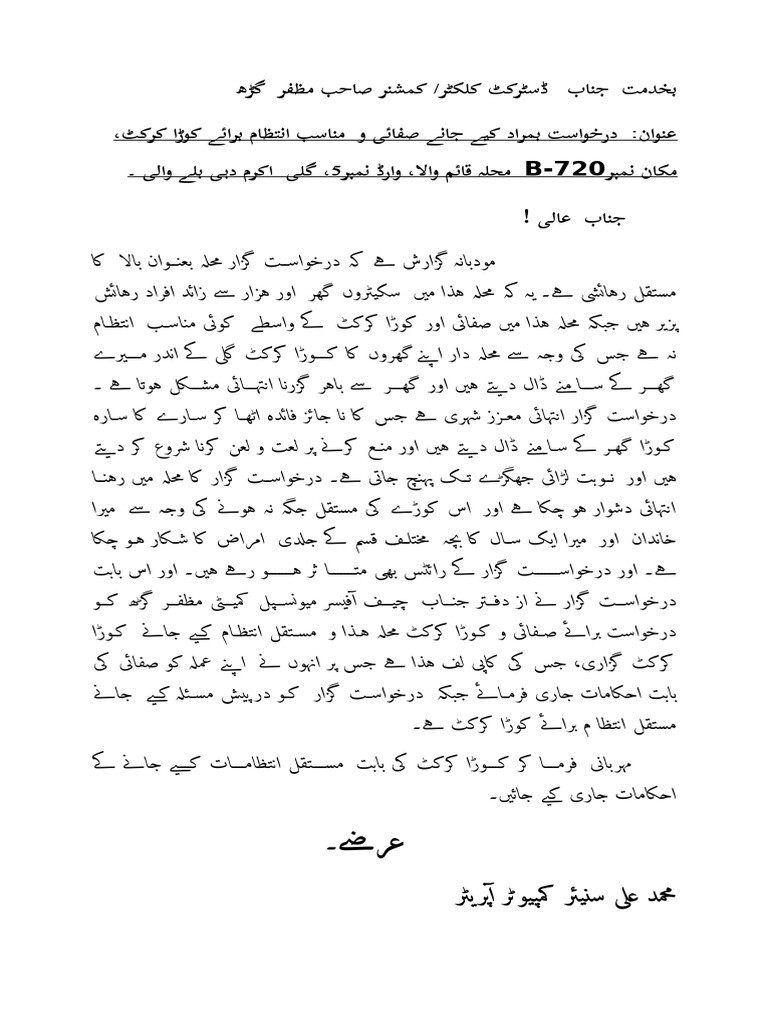 بخدمت جناب ڈسٹرکٹ کلکٹر/ کمشنر صاحب مظفر گڑھ
عنوان: درخواست بمراد کیے جانے صفائی و مناسب انتظام برائے کوڑا کرکٹ،
مکان نمبر B-720 محلہ قائم والا، وارڈ نمبر 5، گلی اکرم دہی بلے والی ۔
جناب عالی !
مودبانہ گزارش ہے کہ درخواست گزار محلہ بعنوان بالا کا
مستقل رہائشی ہے۔ یہ کہ محلہ ہذا میں سکیٹروں گھر اور ہزار سے زائد افراد رہائش
پزیر ہیں جبکہ محلہ ہذا میں صفائی اور کوڑا کرکٹ کے واسطے کوئی مناسب انتظام
نہ ہے جس کی وجہ سے محلہ دار اپنے گھروں کا کوڑا کرکٹ گلی کے اندر میرے
گھر کے سامنے ڈال دیتے ہیں اور گھر سے باہر گزرنا انتہائی مشکل ہوتا ہے ۔
درخواست گزار انتہائی معزز شہری ہے جس کا نا جائز فائدہ اٹھا کر سارے کا سارہ
کوڑا گھر کے سامنے ڈال دیتے ہیں اور منع کرنے پر لعت و لعن کرنا شروع کر دیتے
ہیں اور نوبت لڑائی جھگڑے تک پہنچ جاتی ہے۔ درخواست گزار کا محلہ میں رہنا
انتہائی دشوار ہو چکا ہے اور اس کوڑے کی مستقل جگہ نہ ہونے کی وجہ سے میرا
خاندان اور میرا ایک سال کا بچہ مختلف قسم کے جلدی امراض کا شکار ہو چکا
ہے۔ اور درخواست گزار کے رائٹس بھی متا ثر ہو رہے ہیں۔ اور اس بابت
درخواست گزار نے از دفتر جناب چیف آفیسر میونسپل کمیٹی مظفر گڑھ کو
درخواست برائے صفائی و کوڑا کرکٹ محلہ ہذا و مستقل انتظام کیے جانے کوڑا
کرکٹ گزاری، جس کی کاپی لف ہذا ہے جس پر انہوں نے اپنے عملہ کو صفائی کی
بابت احکامات جاری فرمائے جبکہ درخواست گزار کو درپیش مسئلہ کیے جانے
مستقل انتظا م برائے کوڑا کرکٹ ہے۔
مہربانی فرما کر کوڑا کرکٹ کی بابت مستقل انتظامات کیے جانے کے
احکامات جاری کیے جائیں۔
عرضے۔
محمد علی سنیئر کمپیوٹر آپریٹر